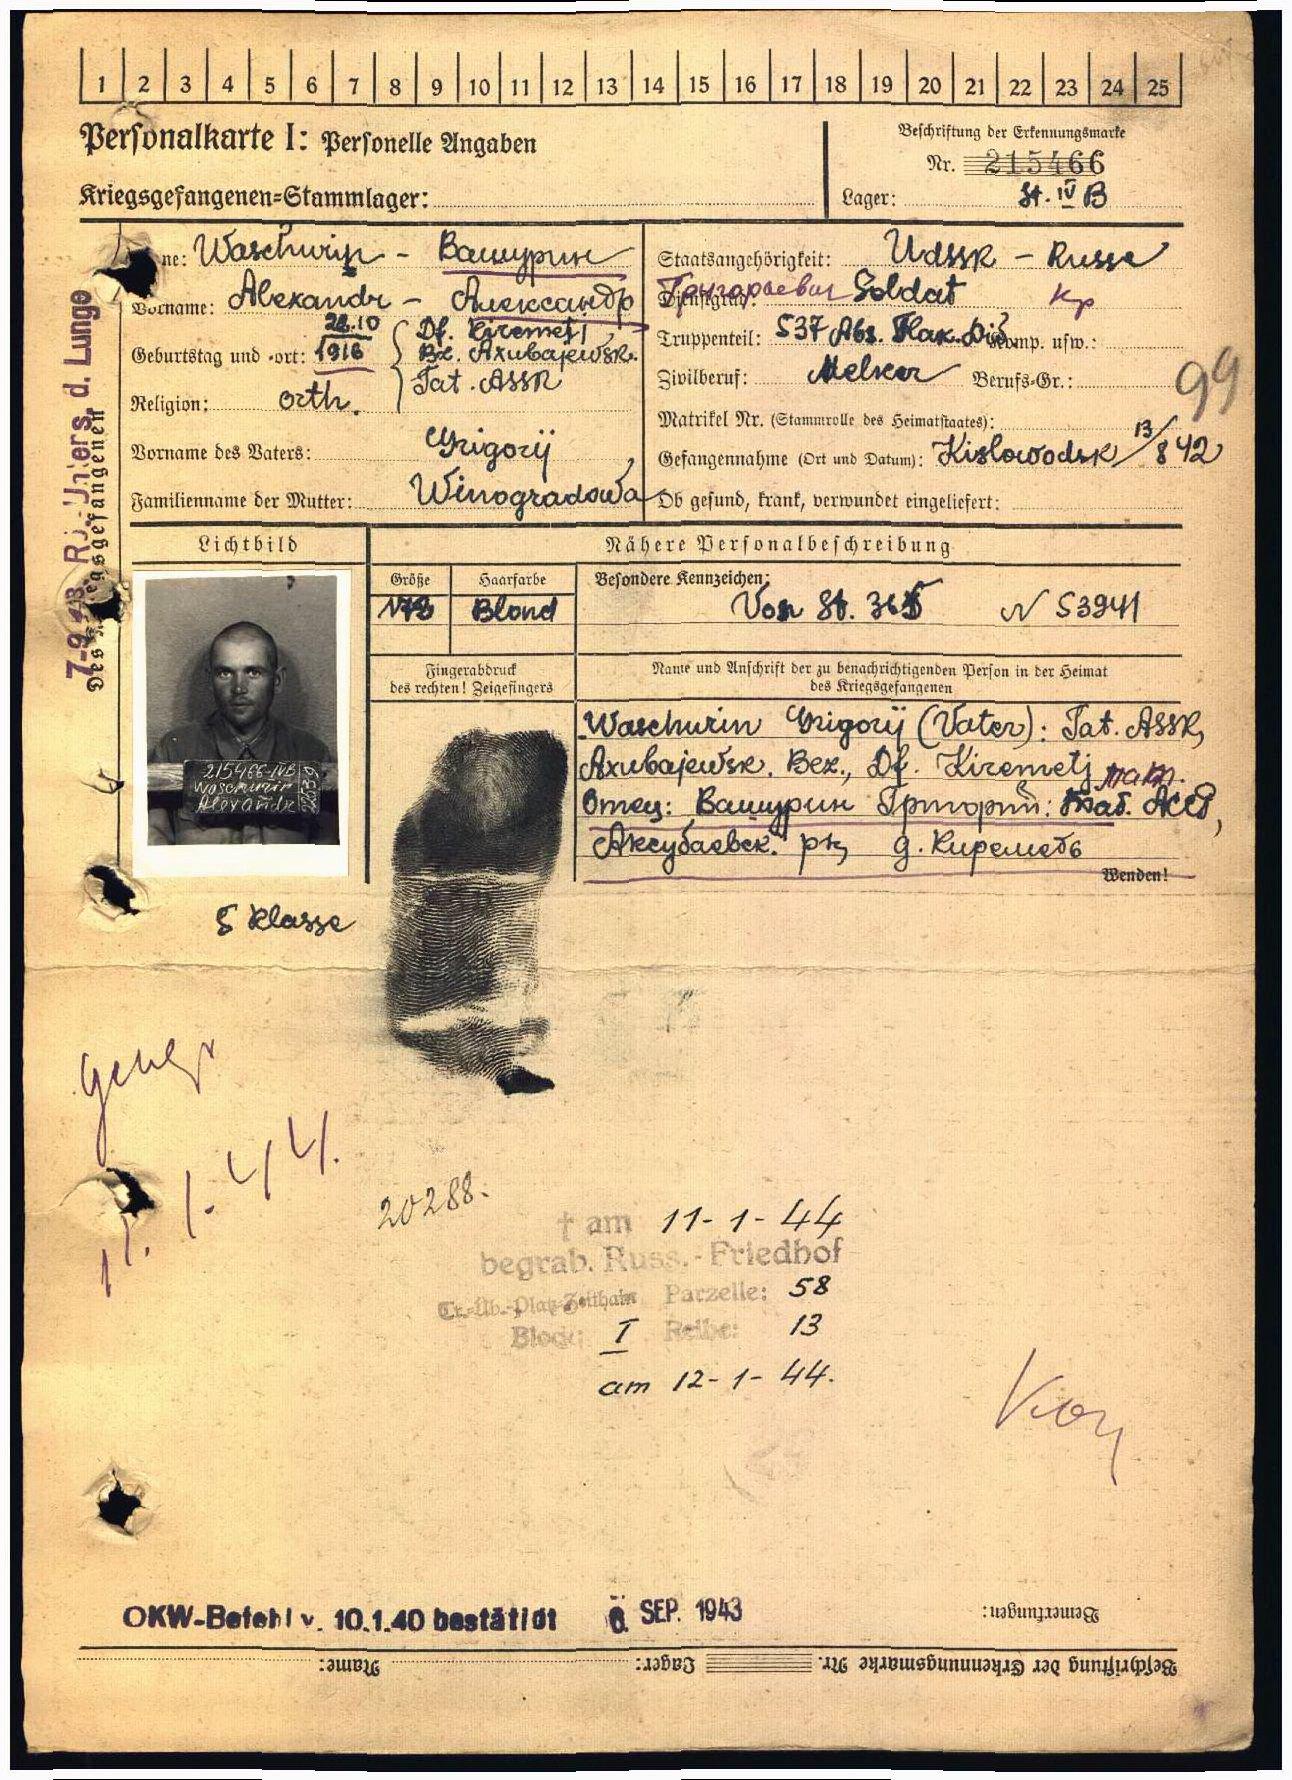 1 2 3 4 5 6 7 8 9 10 11 12 13 14 15 16 17 18 19 20 21 22 23 24 25
Personalkarte I: Personelle Angaben
Beschriftung der Erkennungsmarke
Nr. 215466
Kriegsgefangenen-Stammlager:
Lager: St. IV B
ne: Waschurin - Вашурин
Vorname: Alexandr - Александр
Geburtstag und -ort: 28.10 1916
Df. Kiremetj
Bez. Axubajewsk.
Tat. ASSR
Religion: orth.
Vorname des Vaters: Grigorij
Familienname der Mutter: Winogradowa
Staatsangehörigkeit: UdSSR - Russe
Григорьевич
Dienstgrad: Soldat Кр
Truppenteil: 537 Abs. Flak. Div Komp. usw.:
Zivilberuf: Melker Berufs-Gr.:
99
Matrikel Nr. (Stammrolle des Heimatstaates):
Gefangennahme (Ort und Datum): Kislowodsk 13/8 42
Ob gesund, krank, verwundet eingeliefert:
7-9-43 R.-Unters. d. Lunge
Des Kriegsgefangenen
Lichtbild
Nähere Personalbeschreibung
Größe Haarfarbe Besondere Kennzeichen:
173 Blond Von St. 365 N 53941
Fingerabdruck
des rechten! Zeigefingers
Name und Anschrift der zu benachrichtigenden Person in der Heimat
des Kriegsgefangenen
Waschurin Grigorij (Vater): Tat. ASSR,
Axubajewsk. Bez., Df. Kiremetj
Отец: Вашурин Григорий: Таб. АССР,
Аксубаевск. рн, д. Киреметь
Wenden!
215466-IVB
Waschurin
Alexandr
22039
5 Klasse
11.1.44.
20288.
† am 11-1-44
begrab. Russ.-Friedhof
Tr.-Üb.-Platz-Zeithain Parzelle: 58
Block: I Reihe: 13
am 12-1-44.
OKW-Befehl v. 10.1.40 bestätigt 6. SEP. 1943
Bemerkungen:
Beschriftung der Erkennungsmarke Nr. Lager: Name: